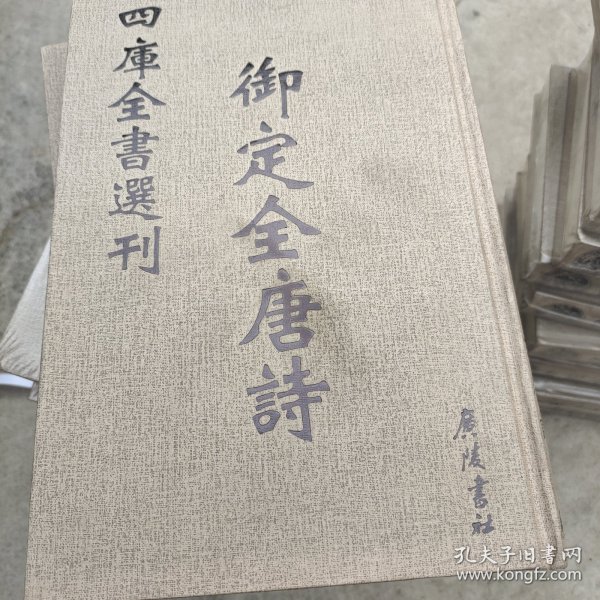 御定全唐詩
四庫全書選刊
廣陵書社
孔夫子旧书网
www.kongfz.com